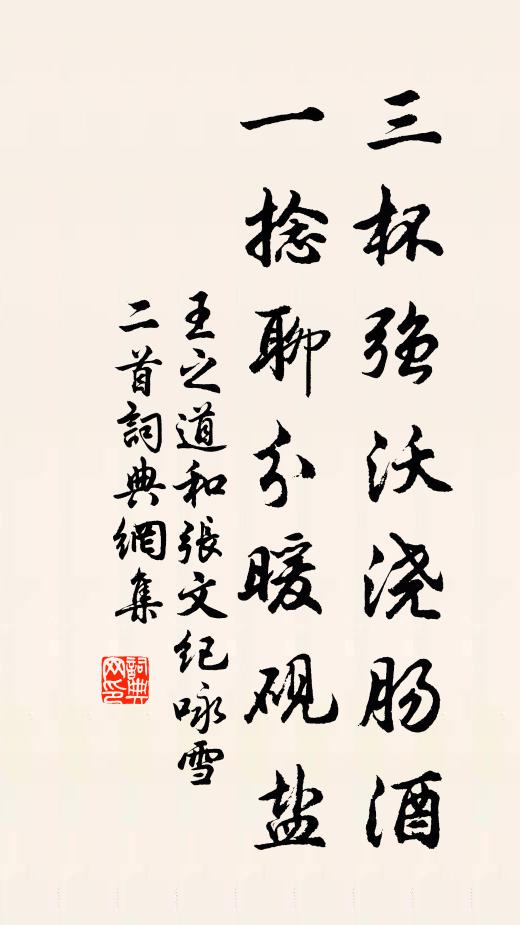 三杯强沃浇肠酒
一捻聊分暖砚盐
王之道和張文纪咏雪
二首詞典網集
詞典网印